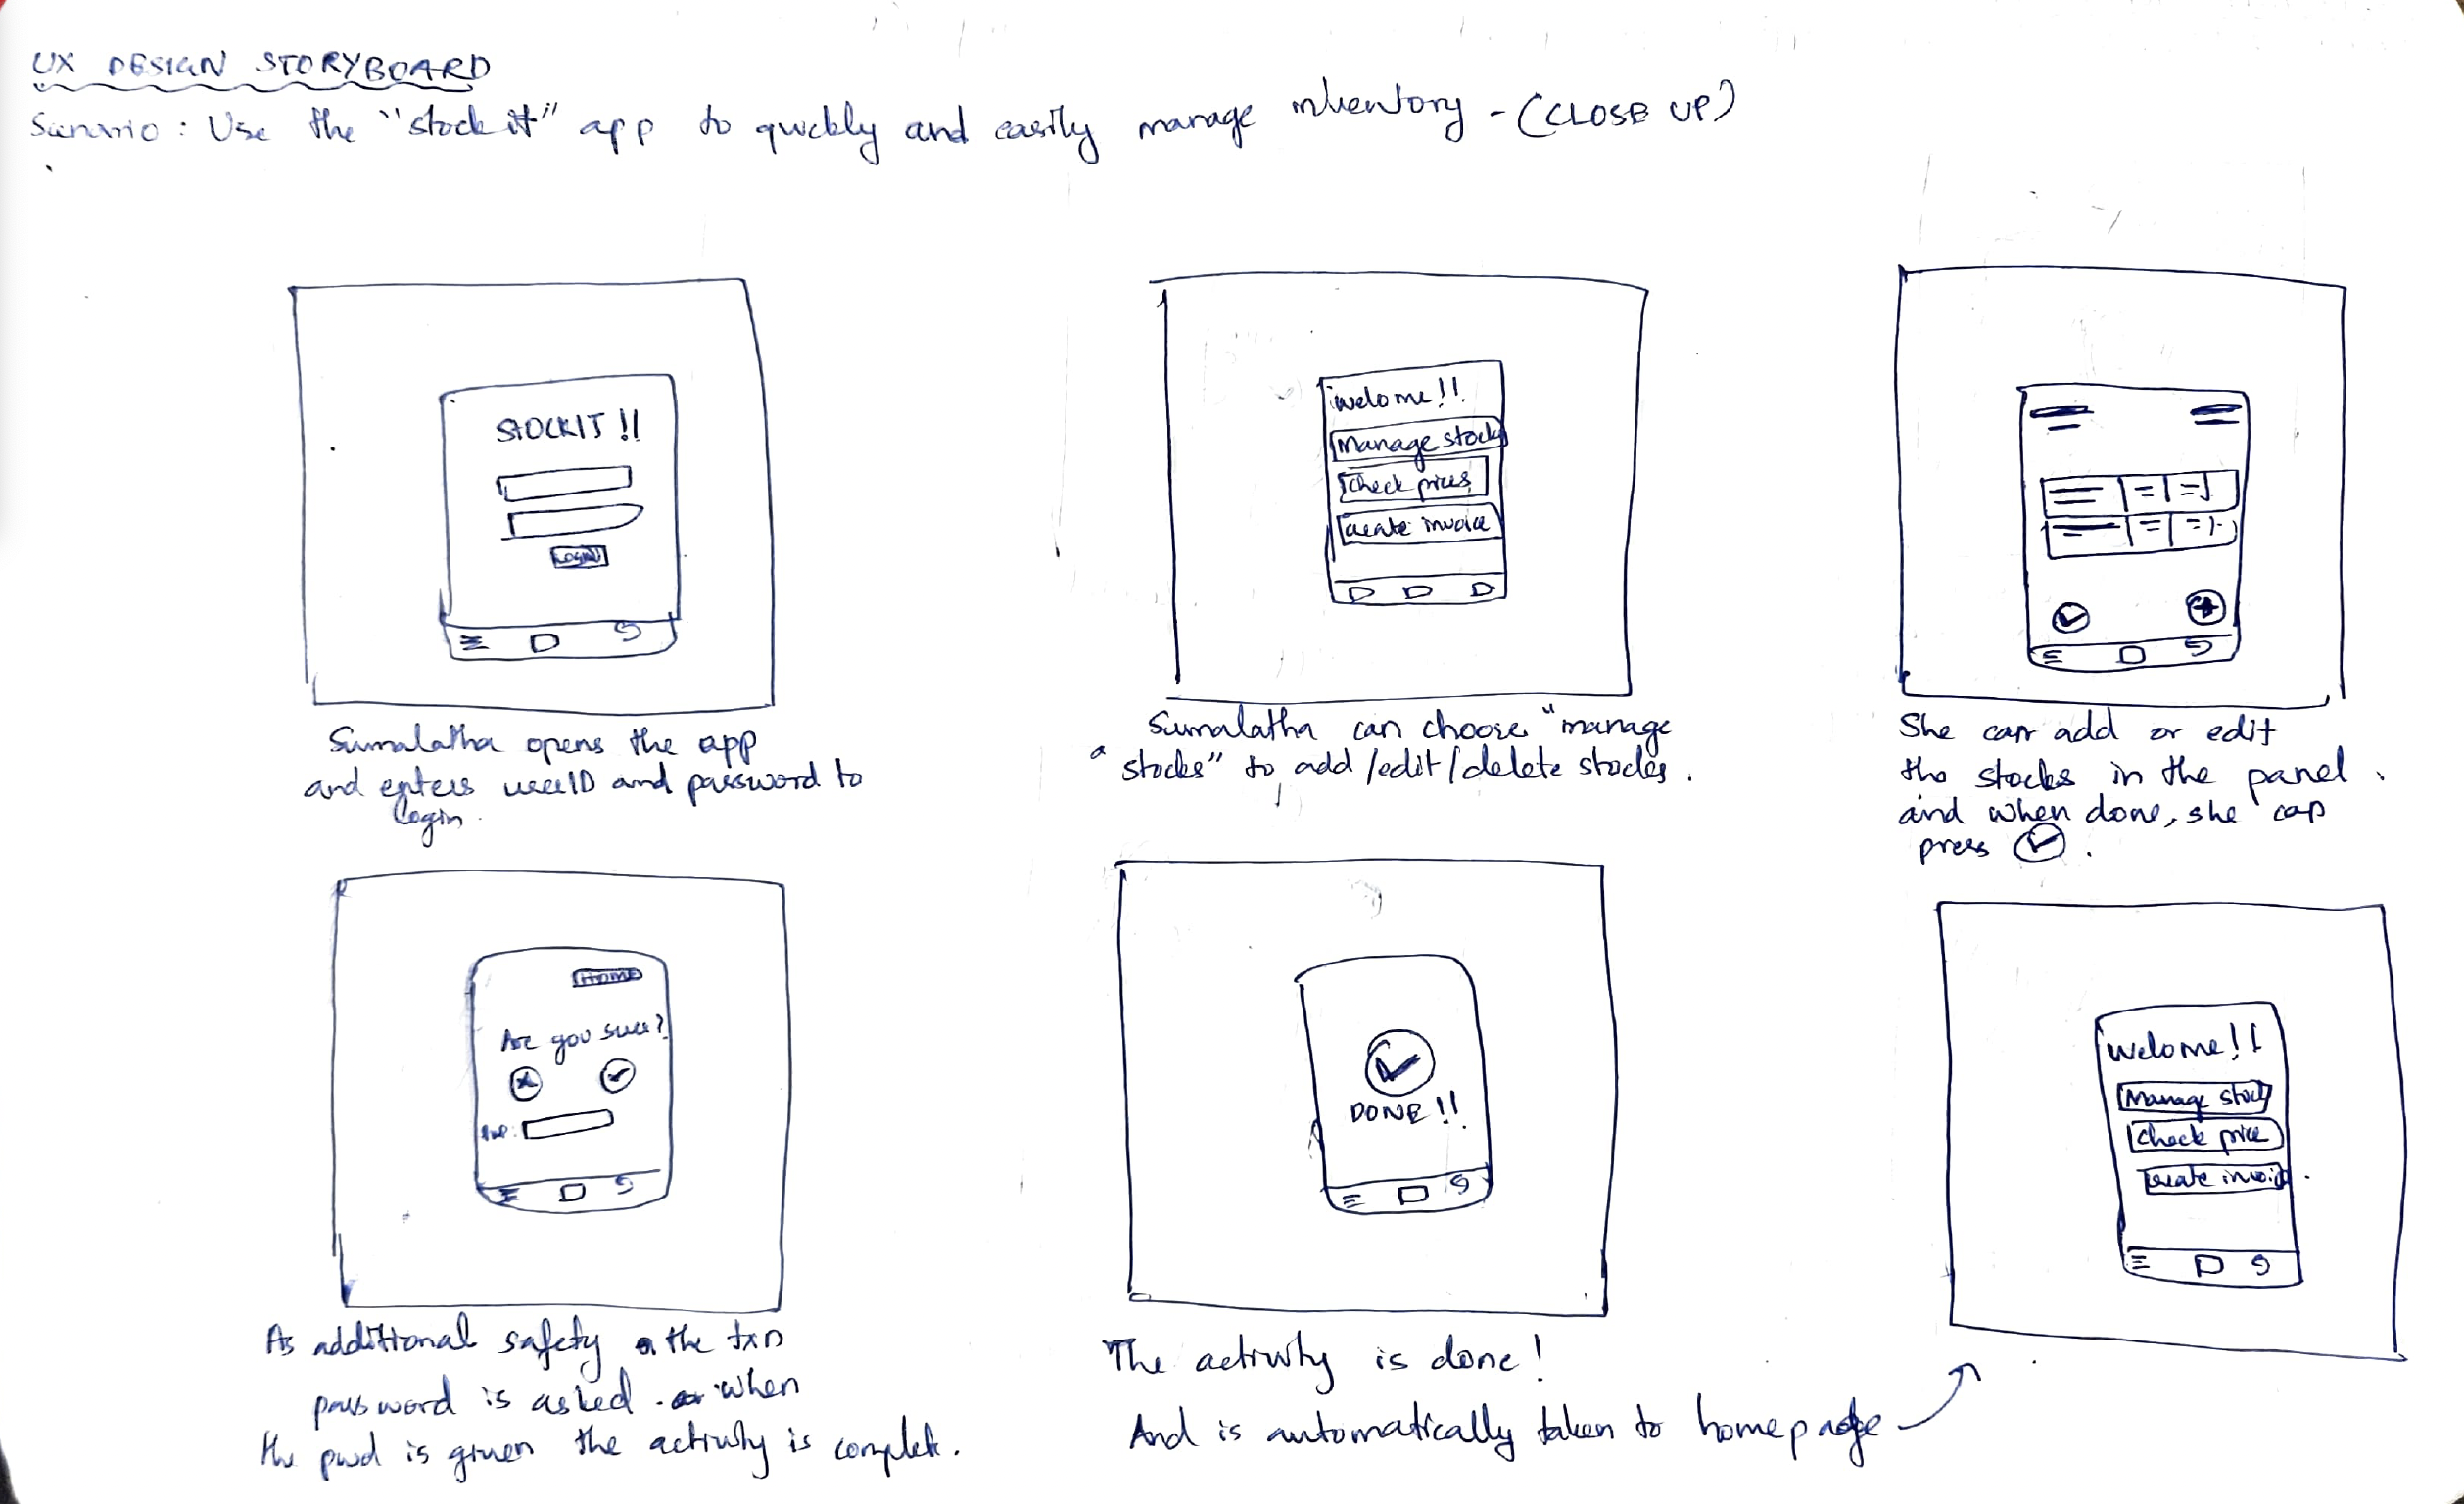 UX DESIGN STORYBOARD
Scenario : Use the "stock it" app to quickly and easily manage inventory - (CLOSE UP)
STOCKIT !!
LOGIN
Sumalatha opens the app
and enters userID and password to
login.
Welome!!
Manage stocks
Check prices
Create invoice
Sumalatha can choose "manage
stocks" to add/edit/delete stocks.
She can add or edit
the stocks in the panel.
and when done, she can
press ✓.
Home
Are you sure?
As additional safety the txn
password is asked. when
the pwd is given the activity is complete.
DONE!!
The activity is done!
And is automatically taken to homepage
Welome!!
Manage stock
Check price
Create invoice